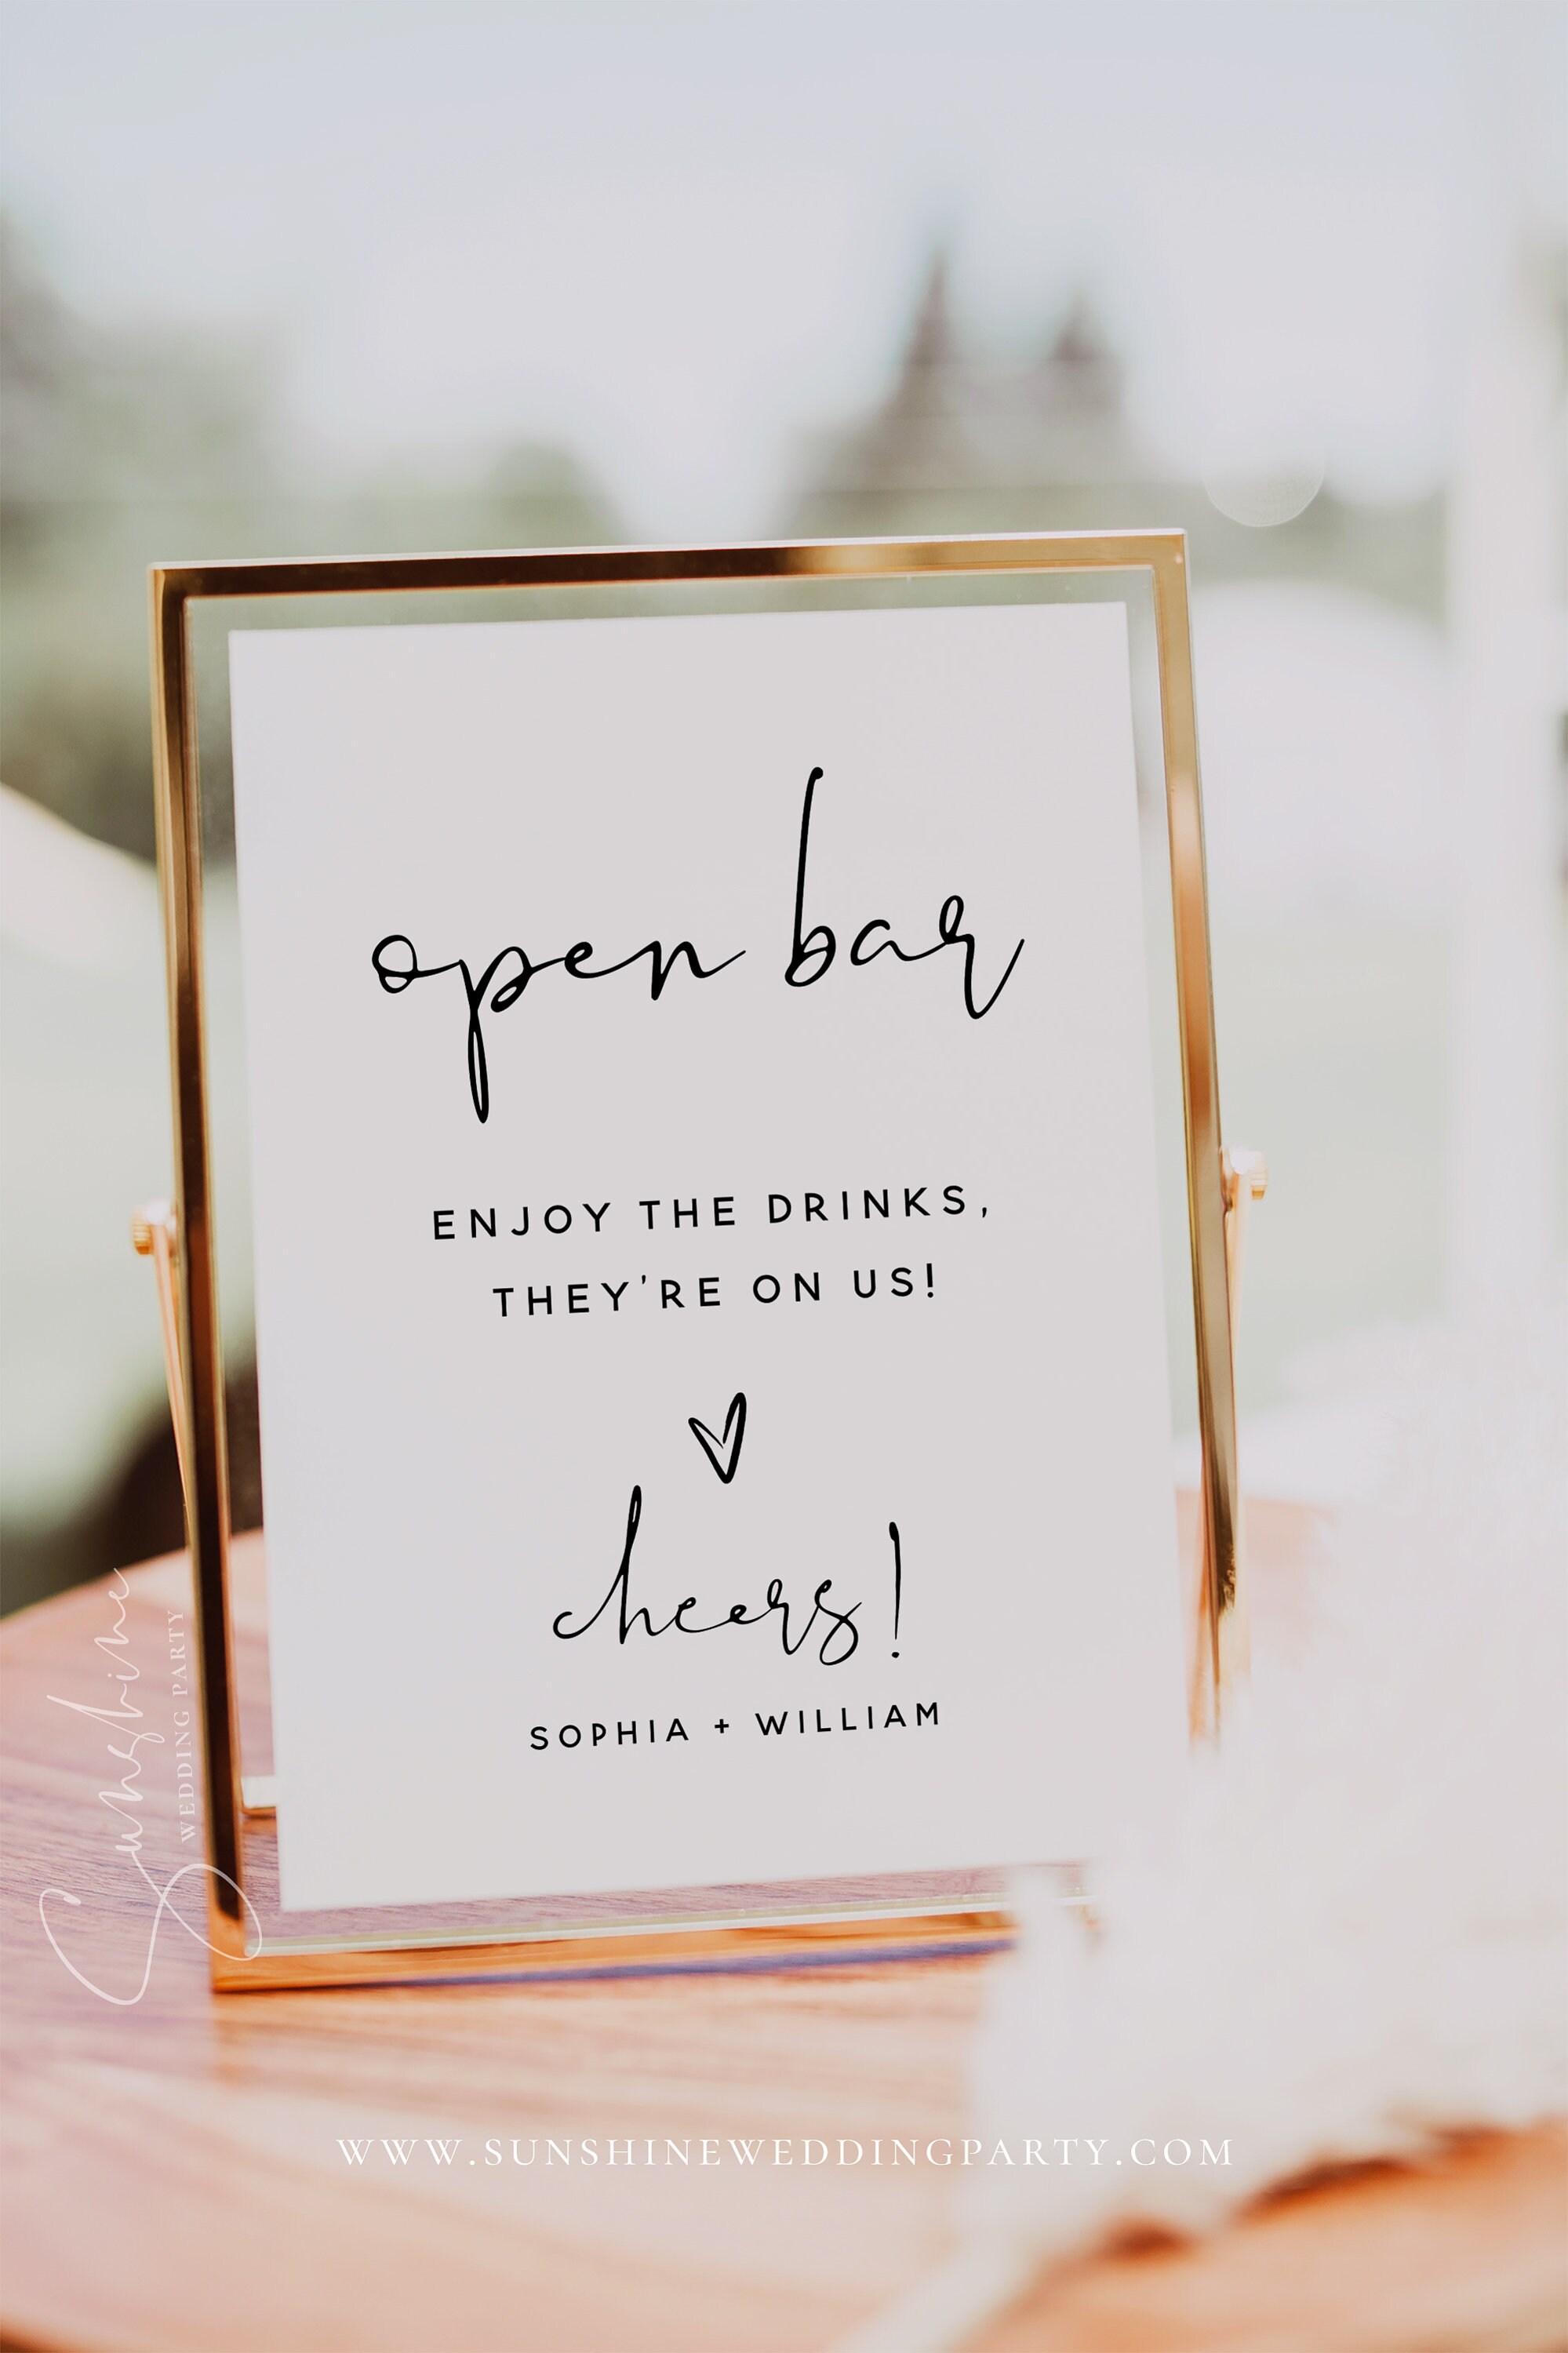 open bar
ENJOY THE DRINKS,
THEY'RE ON US!
cheers!
SOPHIA + WILLIAM
Sunshine
WEDDING PARTY
WWW.SUNSHINEWEDDINGPARTY.COM